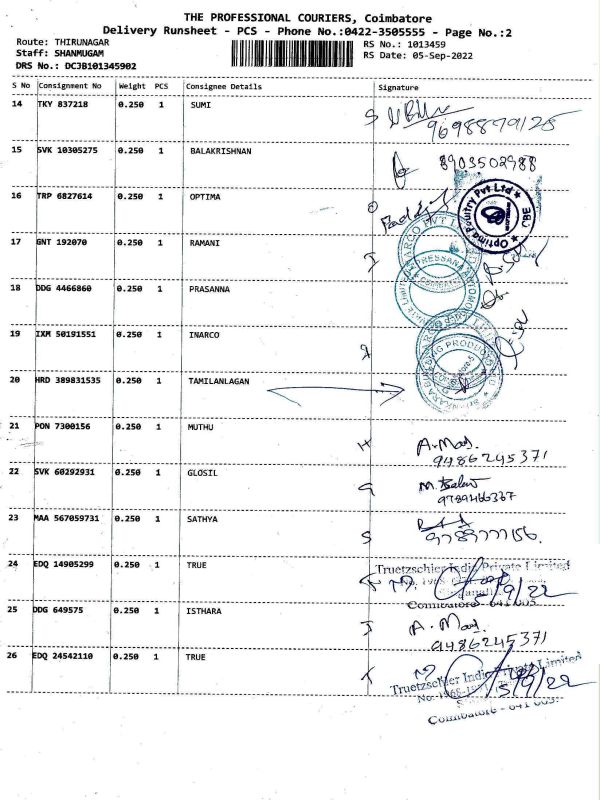 THE PROFESSIONAL COURIERS, Coimbatore
Delivery Runsheet - PCS - Phone No.:0422-3505555 - Page No.:2
Route: THIRUNAGAR
RS No.: 1013459
Staff: SHANMUGAM
RS Date: 05-Sep-2022
DRS No.: DCJB101345902
S No Consignment No Weight PCS Consignee Details Signature
14 TKY 837218 0.250 1 SUMI S
9698879125
15 SVK 10305275 0.250 1 BALAKRISHNAN
8903502988
16 TRP 6827614 0.250 1 OPTIMA O
Optima Poultry Pvt Ltd CBE
17 GNT 192070 0.250 1 RAMANI
18 DDG 4466860 0.250 1 PRASANNA
19 IXM 50191551 0.250 1 INARCO
20 HRD 389831535 0.250 1 TAMILANLAGAN
21 PON 7300156 0.250 1 MUTHU H
9486245371
22 SVK 60292931 0.250 1 GLOSIL G
9789466367
23 MAA 567059731 0.250 1 SATHYA S
9789777156.
24 EDQ 14905299 0.250 1 TRUE
Truetzschler India Private Limited
Coimbatore - 641
25 DDG 649575 0.250 1 ISTHARA I
9486245371
26 EDQ 24542110 0.250 1 TRUE
Truetzschler India Private Limited
5/9/22
Coimbatore - 641 005.